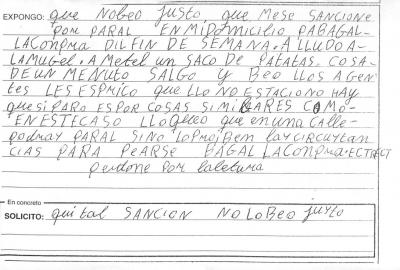 EXPONGO: que NOBEO JUSTO, que MESE SANCIONE
POR PARAL EN MI DOMICILIO PABAGAL-
LACONPRA DIL FIN DE SEMANA. A LLUDO A-
LAMUGEL. A METEL UN SACO DE PATATAS. COSA-
DE UN MENUTO SALGO Y BEO LLOS AGEN
tes LES ESPRICO que LLO NO ESTACIONO HAY
que SI PARO ES POR COSAS SIMILARES COMO-
EN ESTE CASO LLO QUEO que EN UNA CALLE-
PODMAY PARAL SI NO LO PROIBEN LAY CIRCUYTAN
CIAS PARA PEARSE BAGAL LACONPRA. ECTRECT
perdone por laletura
En concreto
SOLICITO: quital SANCION NO LO BEO JUYTO